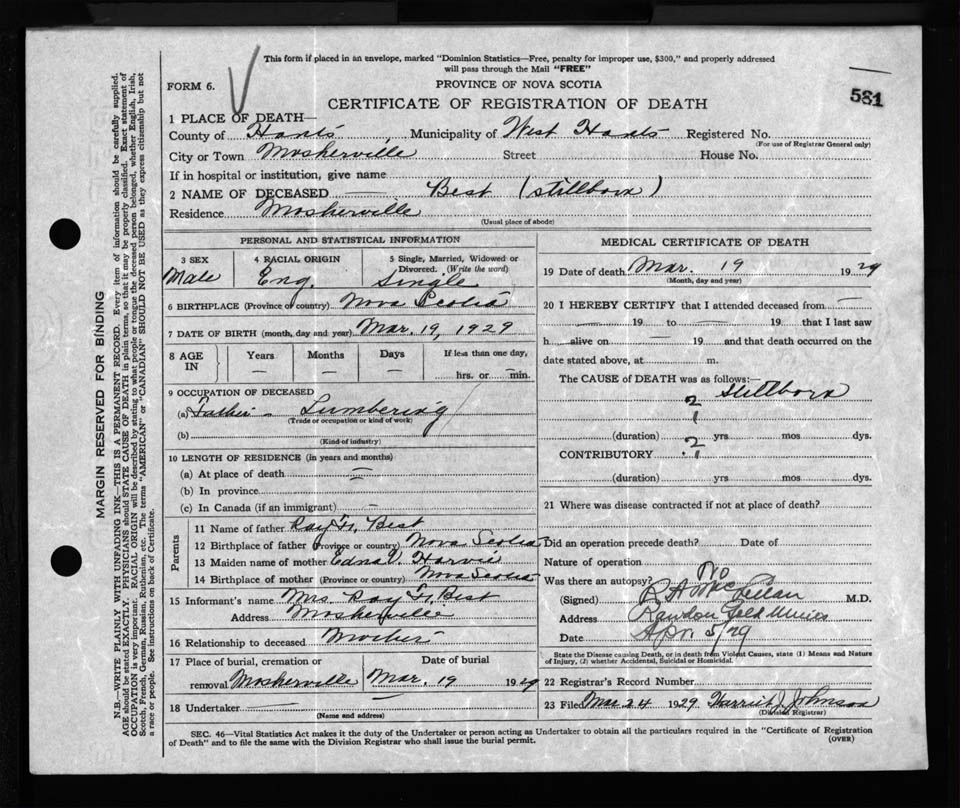 This form if placed in an envelope, marked "Dominion Statistics—Free, penalty for improper use, $300," and properly addressed
will pass through the Mail "FREE"
FORM 6.
PROVINCE OF NOVA SCOTIA
581
CERTIFICATE OF REGISTRATION OF DEATH
1 PLACE OF DEATH—
County of Hants, Municipality of West Hants Registered No.
(For use of Registrar General only)
City or Town Mosherville Street House No.
If in hospital or institution, give name
2 NAME OF DECEASED — Best (Stillborn)
Residence Mosherville
(Usual place of abode)
PERSONAL AND STATISTICAL INFORMATION
3 SEX 4 RACIAL ORIGIN 5 Single, Married, Widowed or
Divorced. (Write the word)
Male Eng. Single
6 BIRTHPLACE (Province or country) Nova Scotia
7 DATE OF BIRTH (month, day and year) Mar. 19, 1929
8 AGE IN Years Months Days If less than one day,
— — — hrs. or — min.
9 OCCUPATION OF DECEASED
(a) Father - Lumbering
(Trade or occupation or kind of work)
(b)
(Kind of industry)
10 LENGTH OF RESIDENCE (in years and months)
(a) At place of death —
(b) In province —
(c) In Canada (if an immigrant) —
Parents
11 Name of father Ray Best
12 Birthplace of father (Province or country) Nova Scotia
13 Maiden name of mother Edna V. Harvie
14 Birthplace of mother (Province or country) Nova Scotia
15 Informant's name Mrs. Ray Best
Address Mosherville
16 Relationship to deceased Mother
17 Place of burial, cremation or Date of burial
removal Mosherville Mar. 19 1929
18 Undertaker —
(Name and address)
MEDICAL CERTIFICATE OF DEATH
19 Date of death Mar. 19 1929
(Month, day and year)
20 I HEREBY CERTIFY that I attended deceased from —
— 19 to — 19 that I last saw
h alive on — 19 and that death occurred on the
date stated above, at m.
The CAUSE of DEATH was as follows:—
Stillborn
?
(duration) yrs mos dys.
CONTRIBUTORY ?
(duration) yrs mos dys.
21 Where was disease contracted if not at place of death?
Did an operation precede death? Date of
Nature of operation
Was there an autopsy? No
(Signed) R A MacLellan M.D.
Address Rawdon Gold Mines
Date Apr 5/29
State the Disease causing Death, or in death from Violent Causes, state (1) Means and Nature
of Injury, (2) whether Accidental, Suicidal or Homicidal.
22 Registrar's Record Number
23 Filed Mar 24 1929 Harriet J. Johnson
(Division Registrar)
SEC. 46—Vital Statistics Act makes it the duty of the Undertaker or person acting as Undertaker to obtain all the particulars required in the "Certificate of Registration
of Death" and to file the same with the Division Registrar who shall issue the burial permit. (OVER)
MARGIN RESERVED FOR BINDING
N.B.—WRITE PLAINLY WITH UNFADING INK—THIS IS A PERMANENT RECORD. Every item of information should be carefully supplied.
AGE should be stated EXACTLY. PHYSICIANS should STATE CAUSE OF DEATH in plain terms, so that it may be properly classified. Exact statement of
OCCUPATION is very important. RACIAL ORIGIN will be described by stating to what people or tongue the deceased person belonged, whether English, Irish,
Scotch, French, German, Russian, Ruthenian, etc. The terms "AMERICAN" or "CANADIAN" SHOULD NOT BE USED as they express citizenship but not
a race or people. See instructions on back of Certificate.